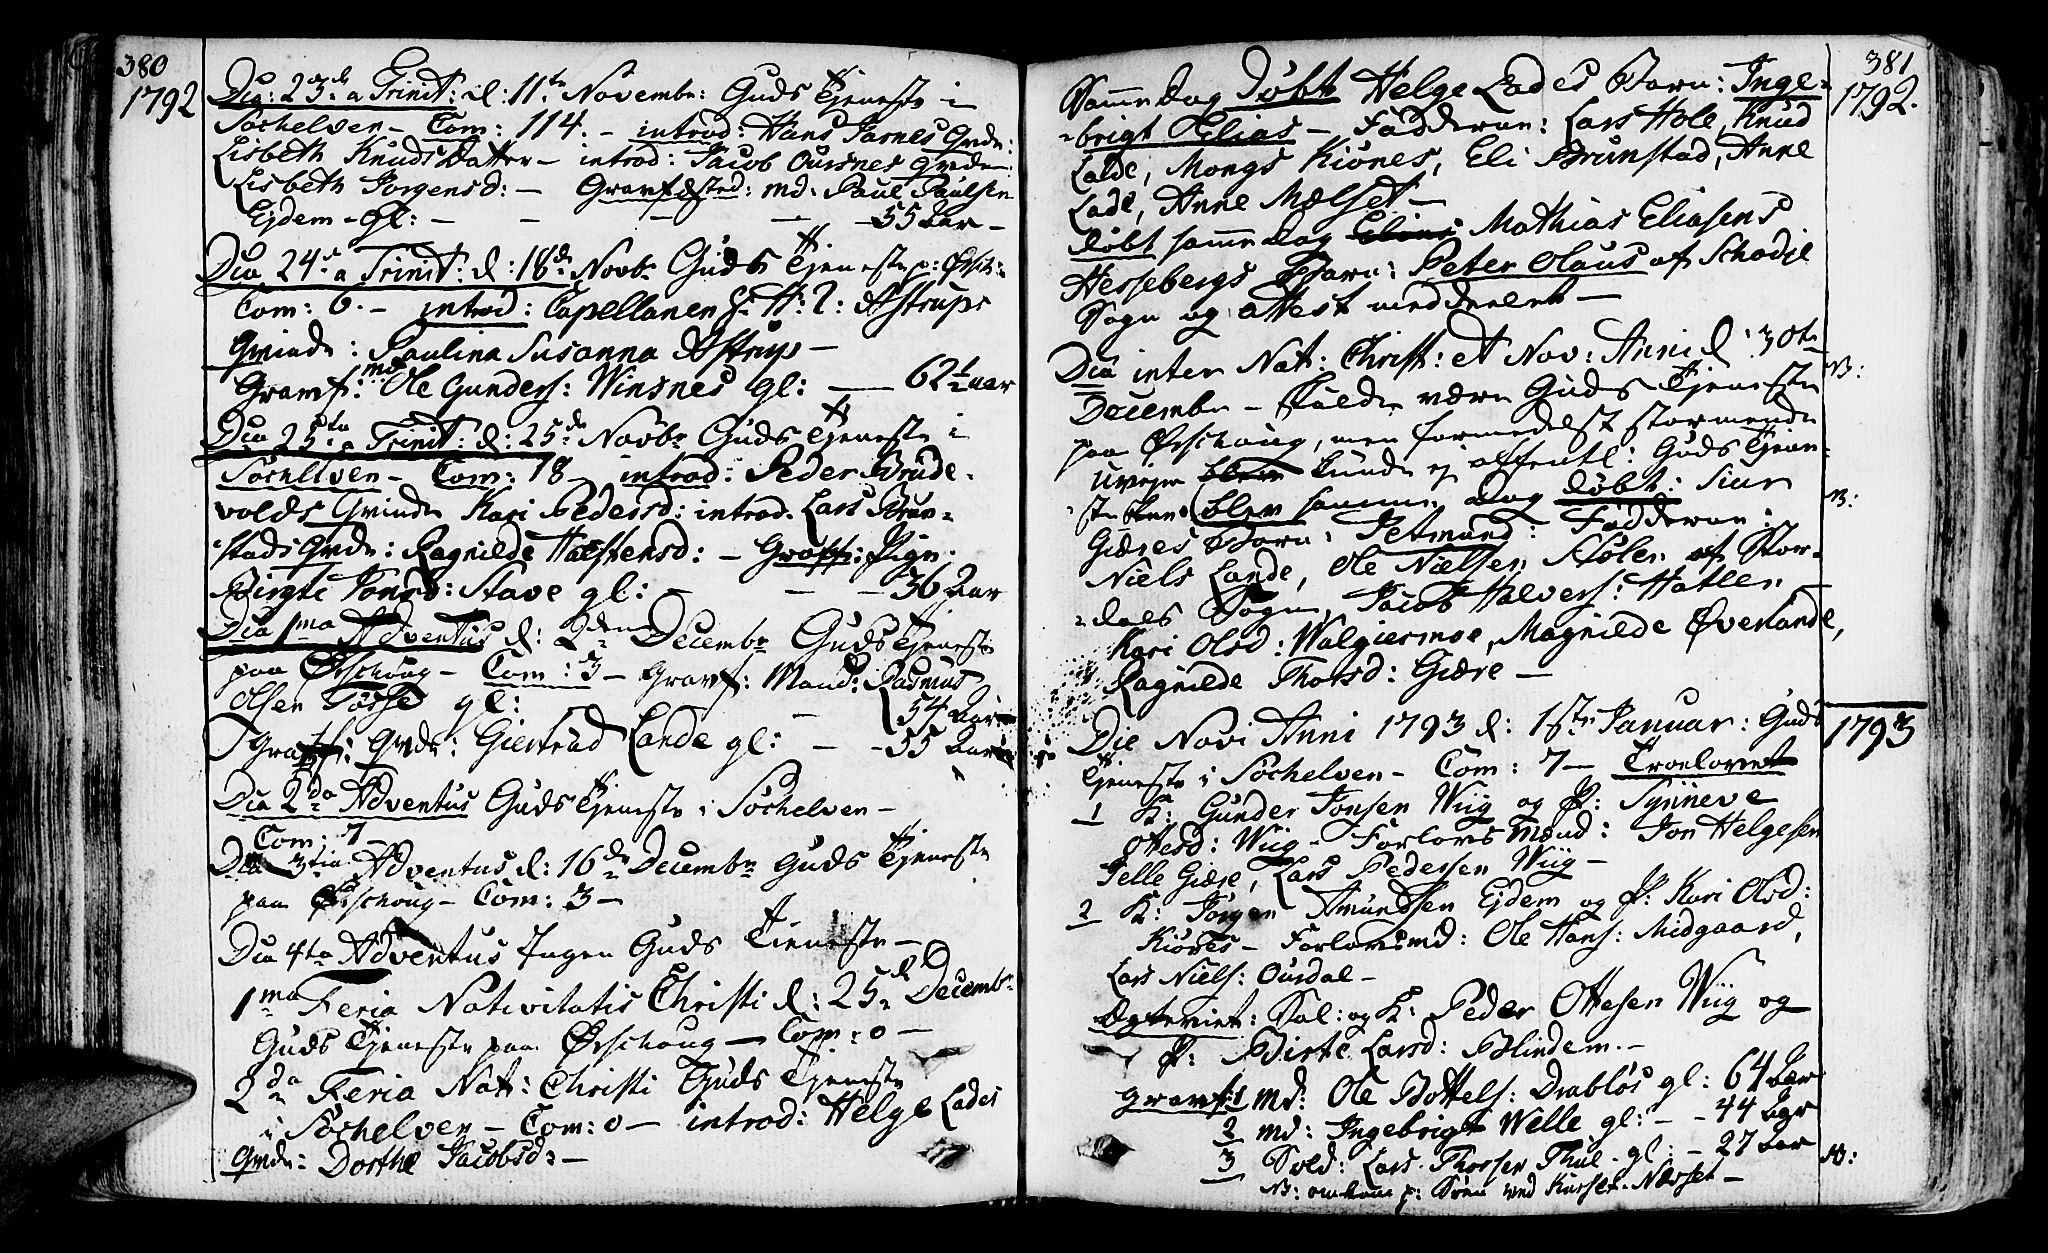 380
1792
Dia: 23de a Trinit: d: 11te Novembr: Guds Tjeneste i
Söchelven - Com: 114. - introd: Hans Jarnes Qvde:
Lisbeth Knuds Datter - introd: Jacob Oursnes Qvde
Lisbeth Jörgensd: - Gravfæsted: md: Paul Paulsen
Ejdem - gl: - - - - 55 Aar -
Dia 24de a Trinit: d: 18de Novbr Guds Tjeneste p: Örsch:
Com: 6. - introd: Capellanen H: Astrups
Qvinde: Paulina Susanna Astrup -
Gravf: md Ole Gunders: Winsnes gl: - 62½ aar
Dia 25ta a Trinit: d: 25de Novbr Guds Tjeneste i
Söchelven - Com: 18 - introd: Peder Brude-
volds Qvinde Kari Pedersd: introd. Lars Brun-
stads Qvde: Ragnilde Halstensd: - Gravf: Pige
Birgte Jonsd: Stave gl: - - - 36 Aar
Dia 1ma Adventus d: 2den Decembr Guds Tjeneste
paa Örschoug - Com: 3 - Gravf: Mand: Rasmus
Olsen Tosse gl: - 54 Aar
Gravf: Qvde: Giertrud Lande gl: - - 55 Aar
Dia 2da Adventus Guds Tjeneste i Söchelven -
Com: 7 -
Dia 3tia Adventus d: 16de Decembr Guds Tjeneste
paa Örschoug - Com: 3 -
Dia 4ta Adventus Ingen Guds Tieneste -
1ma Feria Nativitatis Christi d: 25de Decembr
Guds Tjeneste paa Örschoug - Com: 0 -
2da Feria Nat: Christi Guds Tjeneste
i Söchelven - Com: 0 - introd: Helge Lades
Qvde: Dorthe Jacobsd: -
381
1792.
Samme dag döbt Helge Lades Barn: Inge-
brigt Elias - Fadderne: Lars Hole, Knud
Lade, Mongs Kiönes, Eli Brunstad, Anne
Lade, Anne Mælset -
döbt samme dag Elias Mathias Eliasens
Hessebergs Barn: Peter Olaus af Schodje
Sogn og attest meddeelt -
Dia inter Nat: Christ: et Nov: Anni d: 30te
NB:
Decembr - skulde være Guds Tjeneste
paa Örschoug, men formedelst stormende
Uvejr blev kunde ej offentl: Guds Tjene-
ste skee (blev samme Dag döbt: Siur
NB:
Giæres Barn: Petmund: Fadderne:
Niels Lande, Ole Nielsen Stölen af Stor-
dals Sogn, Jacob Halvers: Hatlen
Kari Olsd: Walgiermoe, Magnilde Överlande,
Ragnilde Thorsd: Giære -
1793
Die Novi Anni 1793 d: 1ste Januar: Guds
Tjeneste i Söchelven - Com: 7 - Troelovet
1 K: Gunder Jonsen Wiig og P: Synneve
Ottesd: Wiig - Forlovsmænd: Jon Helgesen
Pelle Giære, Lars Pedersen Wiig -
2 K: Jörgen Amundsen Ejdem og P: Kari Olsd:
Kiönes - Forlovsmd: Ole Hans: Midgaard,
Lars Niels: Oursdal -
Ægteviet: Sal: og K: Peder Ottesen Wiig og
P: Birte Larsd: Blindem. -
Gravf: 1 md: Ole Bottels: Drablös gl: 64 Aar
2 md: Ingebrigt Welle gl: - - 44 Aar
3 Sold: Lars Thorsen Thue - gl: - 27 Aar
NB:
NB: omkom p: Söen ved Kurset-Næsset -